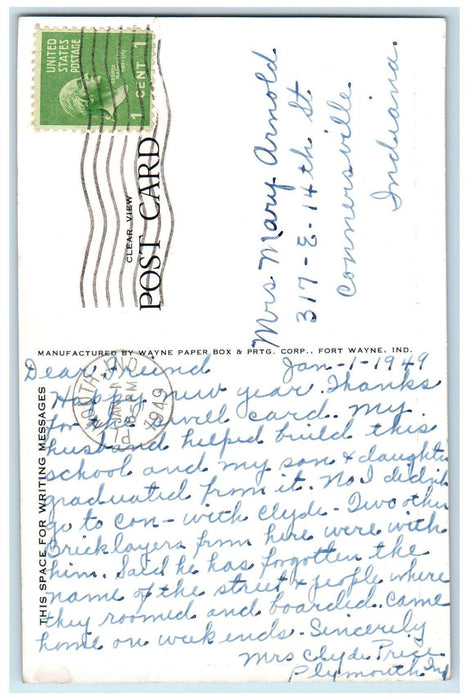 UNITED
STATES
POSTAGE
1 CENT 1
CLEAR VIEW
POST CARD
Mrs Mary Arnold
317-E-14th St
Connersville
Indiana
MANUFACTURED BY WAYNE PAPER BOX & PRTG. CORP., FORT WAYNE, IND.
THIS SPACE FOR WRITING MESSAGES
PLYMOUTH, IND.
JAN 1
PM
1949
Dear Friend Jan-1-1949
Happy new year. Thanks
for the swell card. My
husband helped build this
school and my son & daughter
graduated from it. No I didn't
go to Con- with Clyde- Two other
Bricklayers from here were with
him. Said he has forgotten the
name of the street & people where
they roomed and boarded. Came
home on week ends. Sincerely
Mrs Clyde Price
Plymouth Ind